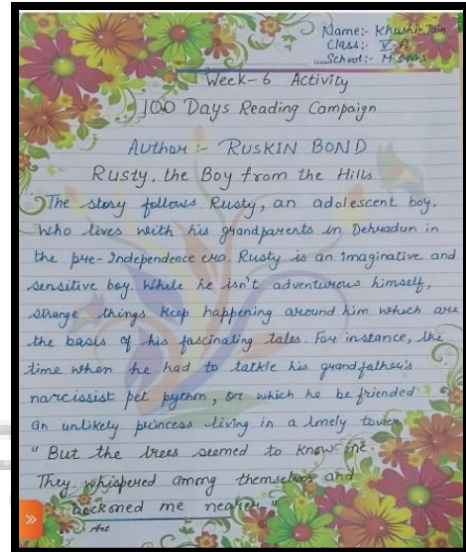 Name:- Khushi Jain
Class:- V-A
School:-
Week-6 Activity
100 Days Reading Campaign
Author:- RUSKIN BOND
Rusty, the Boy from the Hills
The story follows Rusty, an adolescent boy,
who lives with his grandparents in Dehradun in
the pre-Independence era. Rusty is an imaginative and
sensitive boy. While he isn't adventurous himself,
strange things keep happening around him which are
the basis of his fascinating tales. For instance, the
time when he had to tackle his grandfather's
narcissist pet python, or which he be friended
an unlikely princess living in a lonely tower
" But the trees seemed to know me.
They whispered among themselves and
beckoned me nearer."
Art